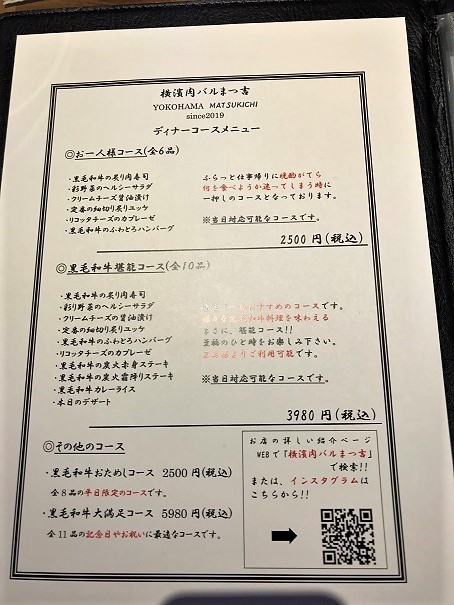 横濱肉バルまつ吉
YOKOHAMA MATSUKICHI
since2019
ディナーコースメニュー
◎お一人様コース(全6品)
・黒毛和牛の炙り肉寿司
・彩野菜のヘルシーサラダ
・クリームチーズ醤油漬け
・定番の細切り炙りユッケ
・リコッタチーズのカプレーゼ
・黒毛和牛のふわとろハンバーグ
ふらっと仕事帰りに晩酌がてら
何を食べようか迷ってしまう時に
一押しのコースとなっております。
※当日対応可能なコースです。
2500円(税込)
◎黒毛和牛堪能コース(全10品)
・黒毛和牛の炙り肉寿司
・彩り野菜のヘルシーサラダ
・クリームチーズの醤油漬け
・定番の細切り炙りユッケ
・黒毛和牛のふわとろハンバーグ
・リコッタチーズのカプレーゼ
・黒毛和牛の炭火赤身ステーキ
・黒毛和牛の炭火霜降りステーキ
・黒毛和牛カレーライス
・本日のデザート
すすめのコースです。
和牛料理を味わえる
まさに、堪能コース!!
至極のひと時をお楽しみ下さい。
よりご利用可能です。
※当日対応可能なコースです。
3980円(税込)
◎その他のコース
・黒毛和牛おためしコース 2500円(税込)
全8品の平日限定のコースです。
・黒毛和牛大満足コース 5980円(税込)
全11品の記念日やお祝いに最適なコースです。
お店の詳しい紹介ページ
WEBで『横濱肉バルまつ吉』
で検索!!
または、インスタグラムは
こちらから!!